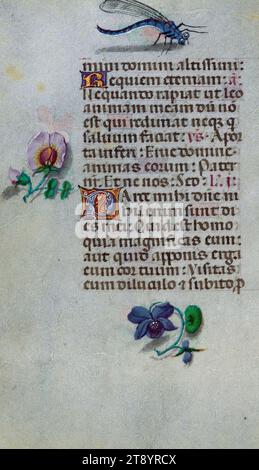 mini domini altissimi:
Requiem eternam: a
Nequando rapiat ut leo
animam meam dū nō
est qui redimat neq3
saluum faciat: vs. A por
ta inferi: Erue domine
animas eorum: Pater
nr: Et ne nos: Lcō: i:
Tant michi die ni
esmei: Quid est homo
quia magnificas eum:
aut quid apponis erga
eum cor tuum: Visitas
eum diluculo & subito p
alamy
Image ID: 2T8YRCX
www.alamy.com